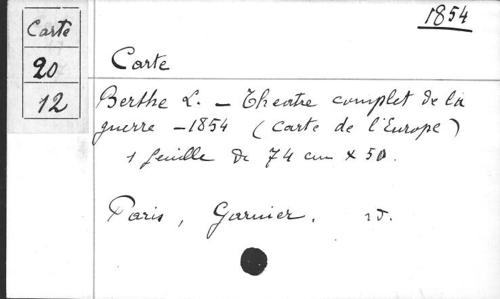 1854
Carte
20
12
Carte
Berthe L. – Theatre complet de la
guerre – 1854 (Carte de l'Europe)
1 feuille de 74 cm x 50.
Paris, Garnier. id.